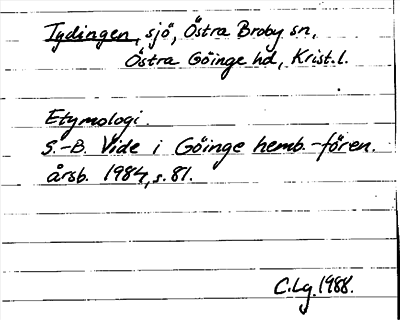 Tydingen, sjö, Östra Broby sn,
Östra Göinge hd, Krist. l.
Etymologi.
S.-B. Vide i Göinge hemb.-fören.
årsb. 1984, s. 81.
C.Lg. 1988.